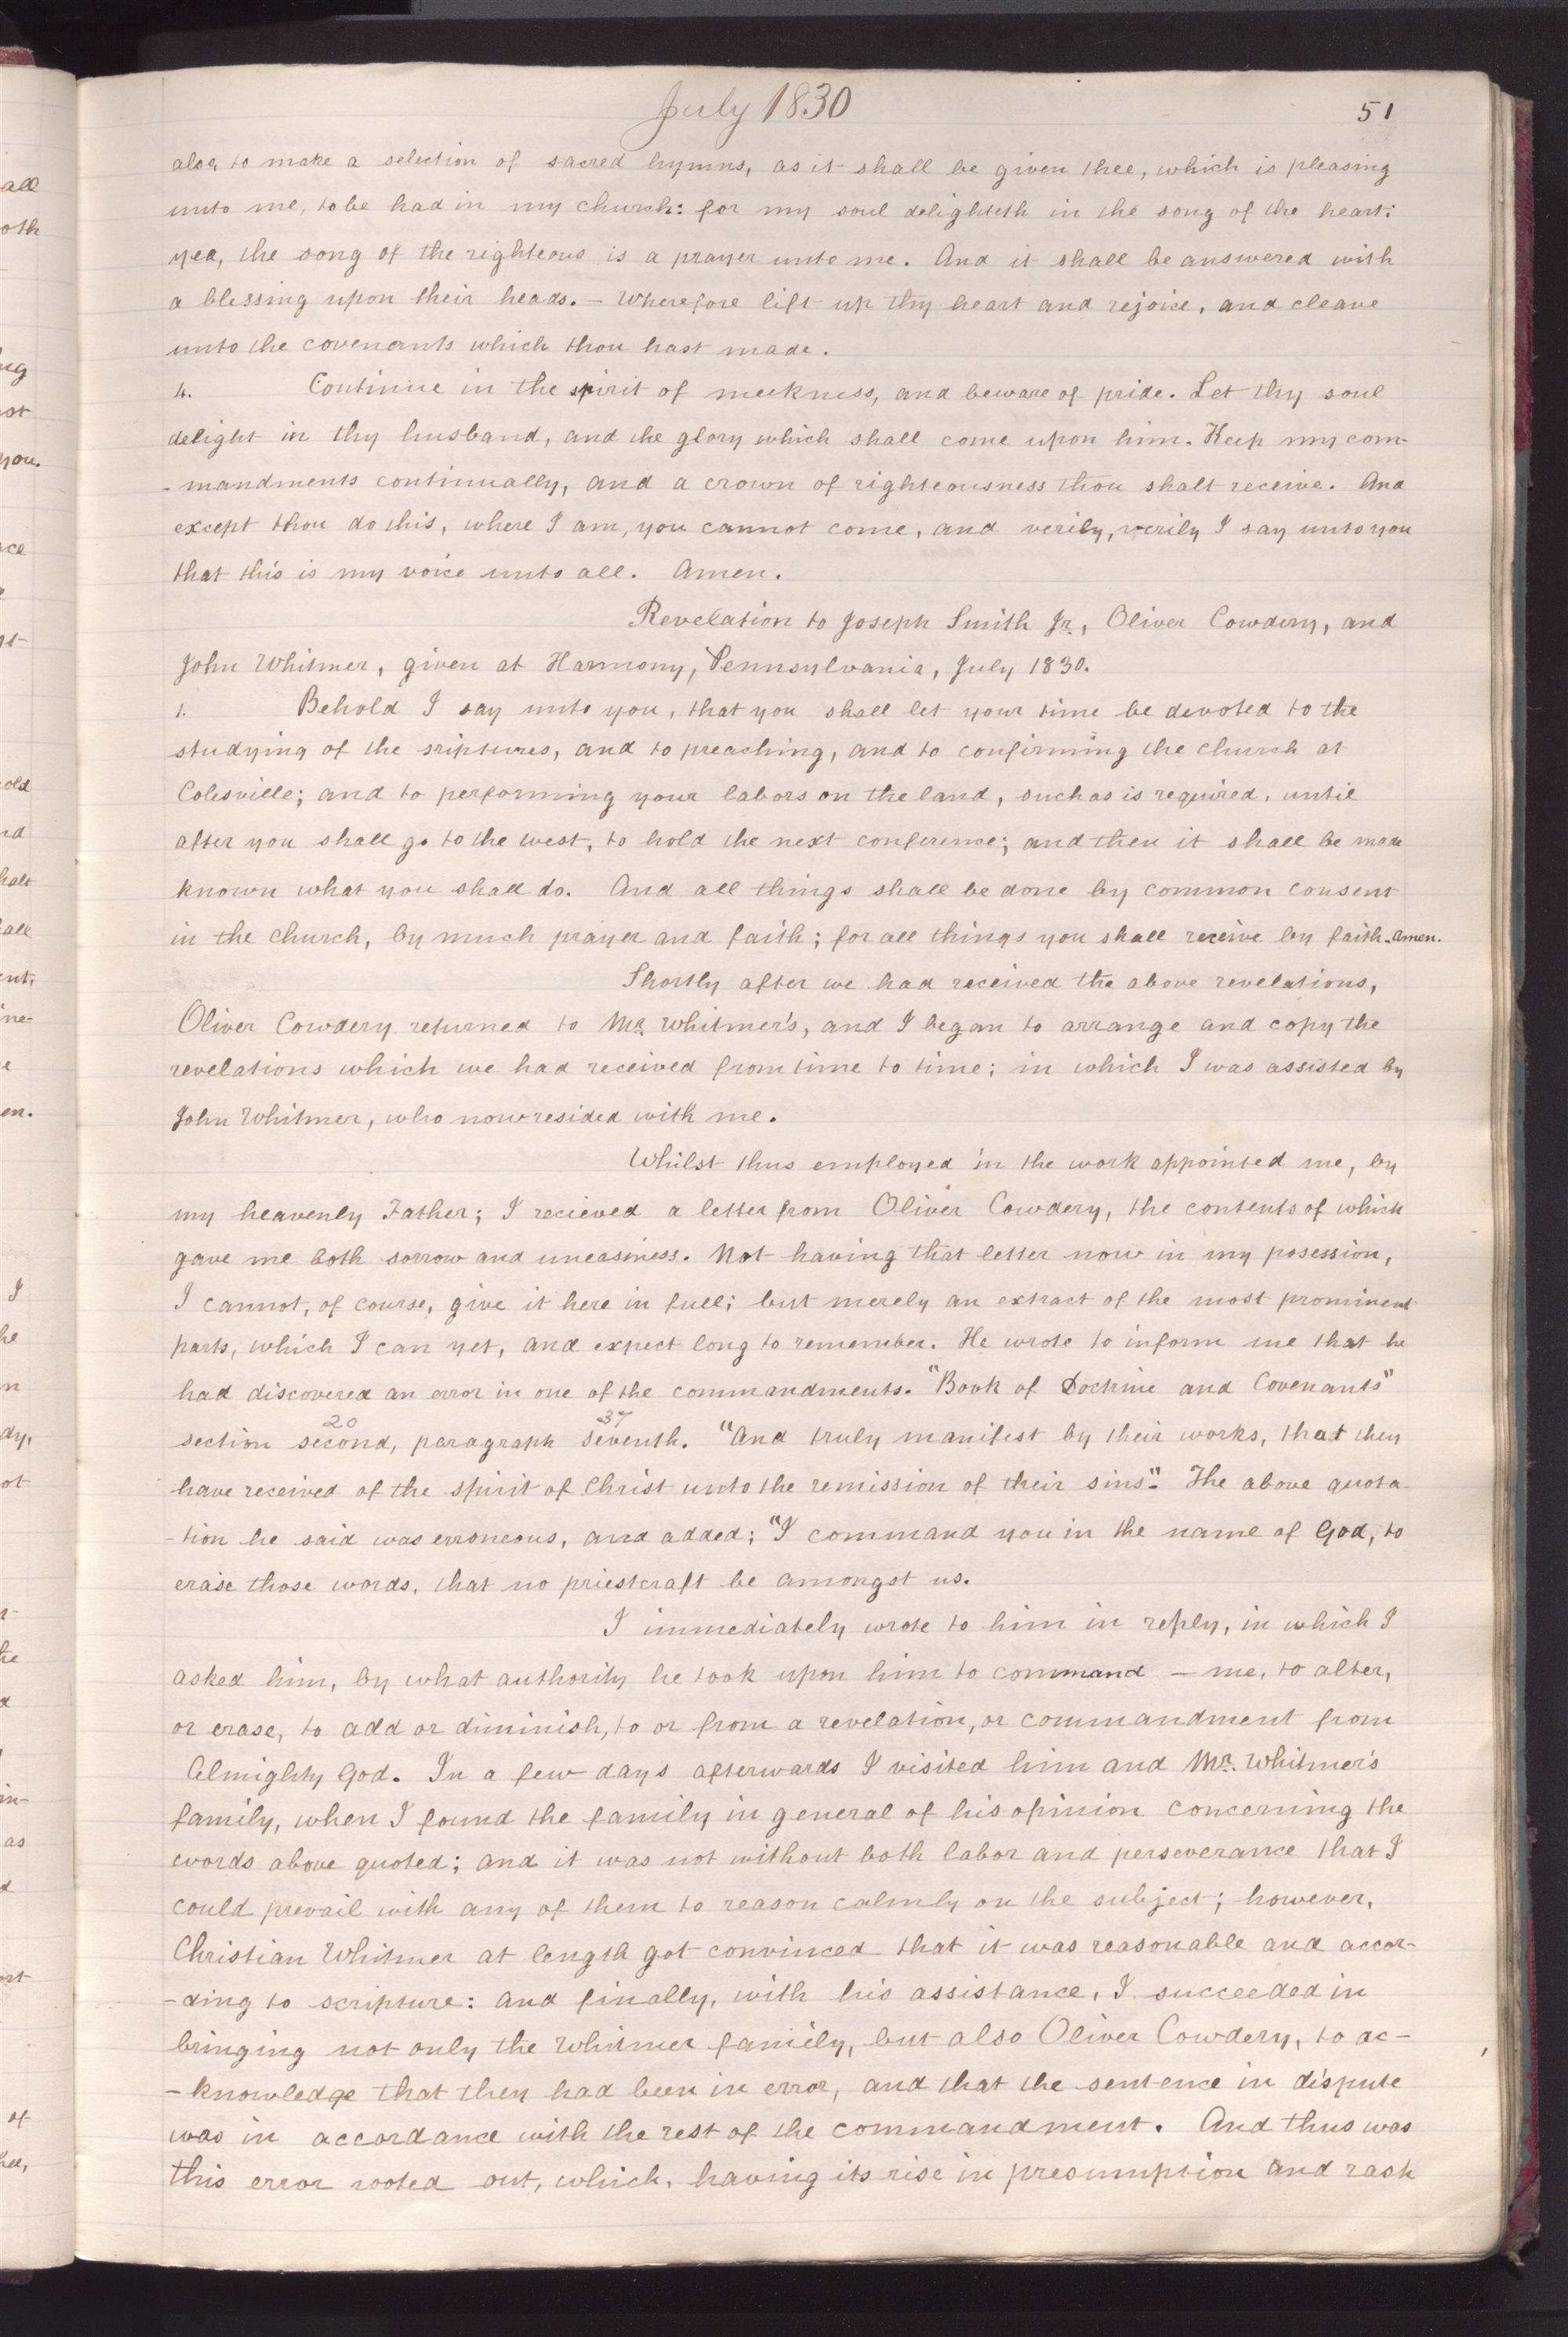 July 1830
51
also, to make a selection of sacred hymns, as it shall be given thee, which is pleasing
unto me, to be had in my church: for my soul delighteth in the song of the heart:
yea, the song of the righteous is a prayer unto me. And it shall be answered with
a blessing upon their heads. – Wherefore lift up thy heart and rejoice, and cleave
unto the covenants which thou hast made.
4. Continue in the spirit of meekness, and beware of pride. Let thy soul
delight in thy husband, and the glory which shall come upon him. Keep my com-
-mandments continually, and a crown of righteousness thou shalt receive. And
except thou do this, where I am, you cannot come, and verily, verily I say unto you
that this is my voice unto all. Amen.
Revelation to Joseph Smith Jr., Oliver Cowdery, and
John Whitmer, given at Harmony, Pennsylvania, July 1830.
1. Behold I say unto you, that you shall let your time be devoted to the
studying of the sriptures, and to preaching, and to confirming the church at
Colesville; and to performing your labors on the land, such as is required, until
after you shall go to the west, to hold the next conference; and then it shall be made
known what you shall do. And all things shall be done by common consent
in the church, by much prayer and faith; for all things you shall receive by faith. Amen.
Shortly after we had received the above revelations,
Oliver Cowdery returned to Mr. Whitmer's, and I began to arrange and copy the
revelations which we had received from time to time; in which I was assisted by
John Whitmer, who now resided with me.
Whilst thus employed in the work appointed me, by
my heavenly Father; I recieved a letter from Oliver Cowdery, the contents of which
gave me both sorrow and uneasiness. Not having that letter now in my posession,
I cannot, of course, give it here in full; but merely an extract of the most prominent
parts, which I can yet, and expect long to remember. He wrote to inform me that he
had discovered an error in one of the commandments. "Book of Doctrine and Covenants"
20 37
section second, paragraph seventh. "And truly manifest by their works, that they
have received of the spirit of Christ unto the remission of their sins". The above quota-
-tion he said was erroneous, and added; "I command you in the name of God, to
erase those words, that no priestcraft be amongst us.
I immediately wrote to him in reply, in which I
asked him, by what authority he took upon him to command – me, to alter,
or erase, to add or diminish, to or from a revelation, or commandment from
Almighty God. In a few days afterwards I visited him and Mr. Whitmer's
family, when I found the family in general of his opinion concerning the
words above quoted; and it was not without both labor and perseverance that I
could prevail with any of them to reason calmly on the subject; however,
Christian Whitmer at length got convinced that it was reasonable and accor-
-ding to scripture: and finally, with his assistance, I succeeded in
bringing not only the Whitmer family, but also Oliver Cowdery, to ac-
-knowledge that they had been in error, and that the sentence in dispute
was in accordance with the rest of the commandment. And thus was
this error rooted out, which, having its rise in presumption and rash